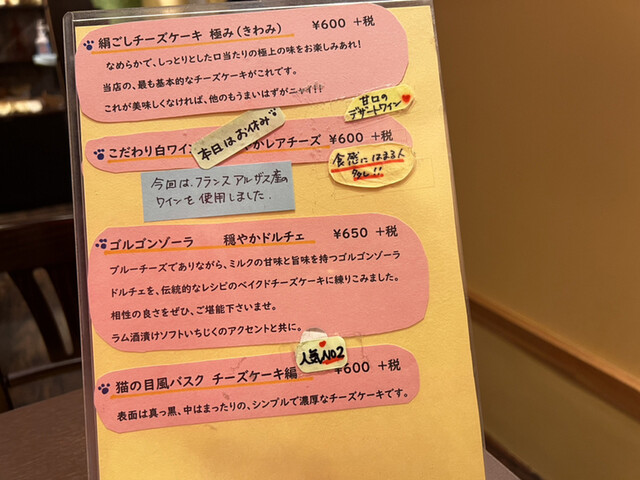 絹ごしチーズケーキ 極み(きわみ) ¥600 +税
なめらかで、しっとりとした口当たりの極上の味をお楽しみあれ!
当店の、最も基本的なチーズケーキがこれです。
これが美味しくなければ、他のもうまいはずがニャイ!!
甘口の
デザートワイン
本日はお休み
こだわり白ワイン かレアチーズ ¥600 +税
食感にはまる人
多し!!
今回は、フランス アルザス産の
ワインを使用しました.
ゴルゴンゾーラ 穏やかドルチェ ¥650 +税
ブルーチーズでありながら、ミルクの甘味と旨味を持つゴルゴンゾーラ
ドルチェを、伝統的なレシピのベイクドチーズケーキに練りこみました。
相性の良さをぜひ、ご堪能下さいませ。
ラム酒漬けソフトいちじくのアクセントと共に。
人気No2
猫の目風バスク チーズケーキ編 ¥600 +税
表面は真っ黒、中はまったりの、シンプルで濃厚なチーズケーキです。